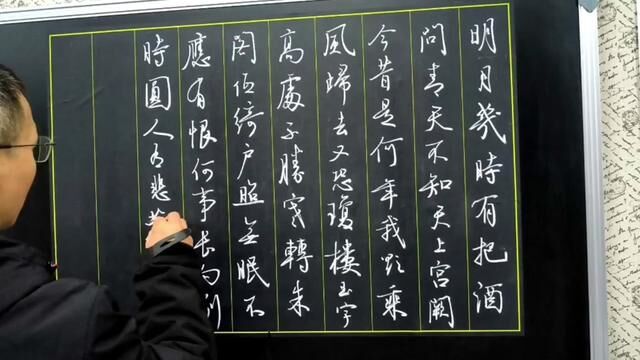 明月幾時有把酒
問青天不知天上宮闕
今昔是何年我欲乘
風歸去又恐瓊樓玉宇
高處不勝寒轉朱
閣低綺户照無眠不
應有恨何事长向別
時圓人有悲